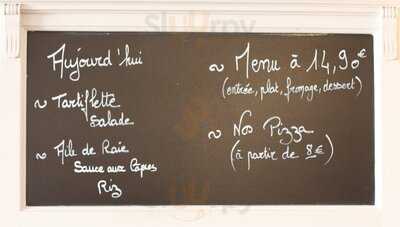 Aujourd'hui
~ Tartiflette
Salade
~ Aile de Raie
Sauce aux Câpres
Riz
~ Menu à 14,90€
(entrée, plat, fromage, dessert)
~ Nos Pizza
(à partir de 8€)
sluurpy
sluurpy